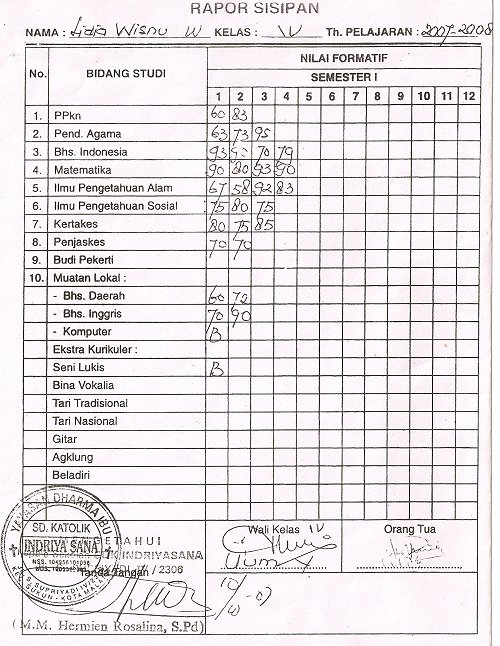 RAPOR SISIPAN
NAMA : Lidia Wisnu W KELAS : IV Th. PELAJARAN : 2007-2008
No. BIDANG STUDI NILAI FORMATIF
SEMESTER I
1 2 3 4 5 6 7 8 9 10 11 12
1. PPkn 60 83
2. Pend. Agama 63 73 95
3. Bhs. Indonesia 93 70 79
4. Matematika 90 80 93 90
5. Ilmu Pengetahuan Alam 67 58 92 83
6. Ilmu Pengetahuan Sosial 75 80 75
7. Kertakes 80 75 85
8. Penjaskes 70 70
9. Budi Pekerti
10. Muatan Lokal :
- Bhs. Daerah 60 72
- Bhs. Inggris 70 90
- Komputer B
Ekstra Kurikuler :
Seni Lukis B
Bina Vokalia
Tari Tradisional
Tari Nasional
Gitar
Agklung
Beladiri
YAYASAN DHARMA IBU
SD. KATOLIK
INDRIYA SANA
KEC. SUKUN - KOTA MALANG
INDRIYASANA
/ 2306
Tanda Tangan
(M.M. Hermien Rosalina, S.Pd)
Wali Kelas IV
Orang Tua